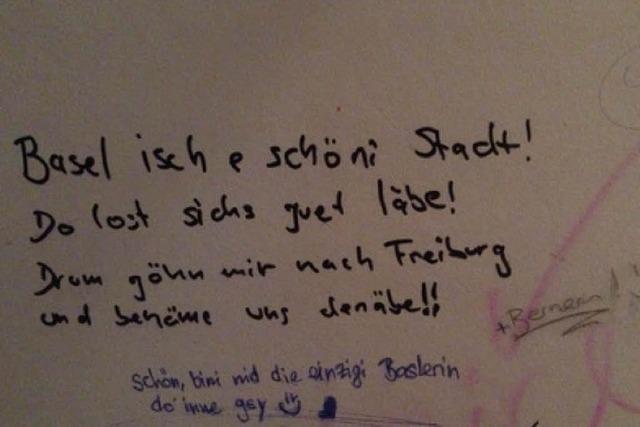 Basel isch e schöni Stadt!
Do lost sichs guet läbe!
Drum göhn mir nach Freiburg
und benäme uns denäbe!!
+ Bernerin!
schön, bini nid die einzigi Baslerin
do inne gsy